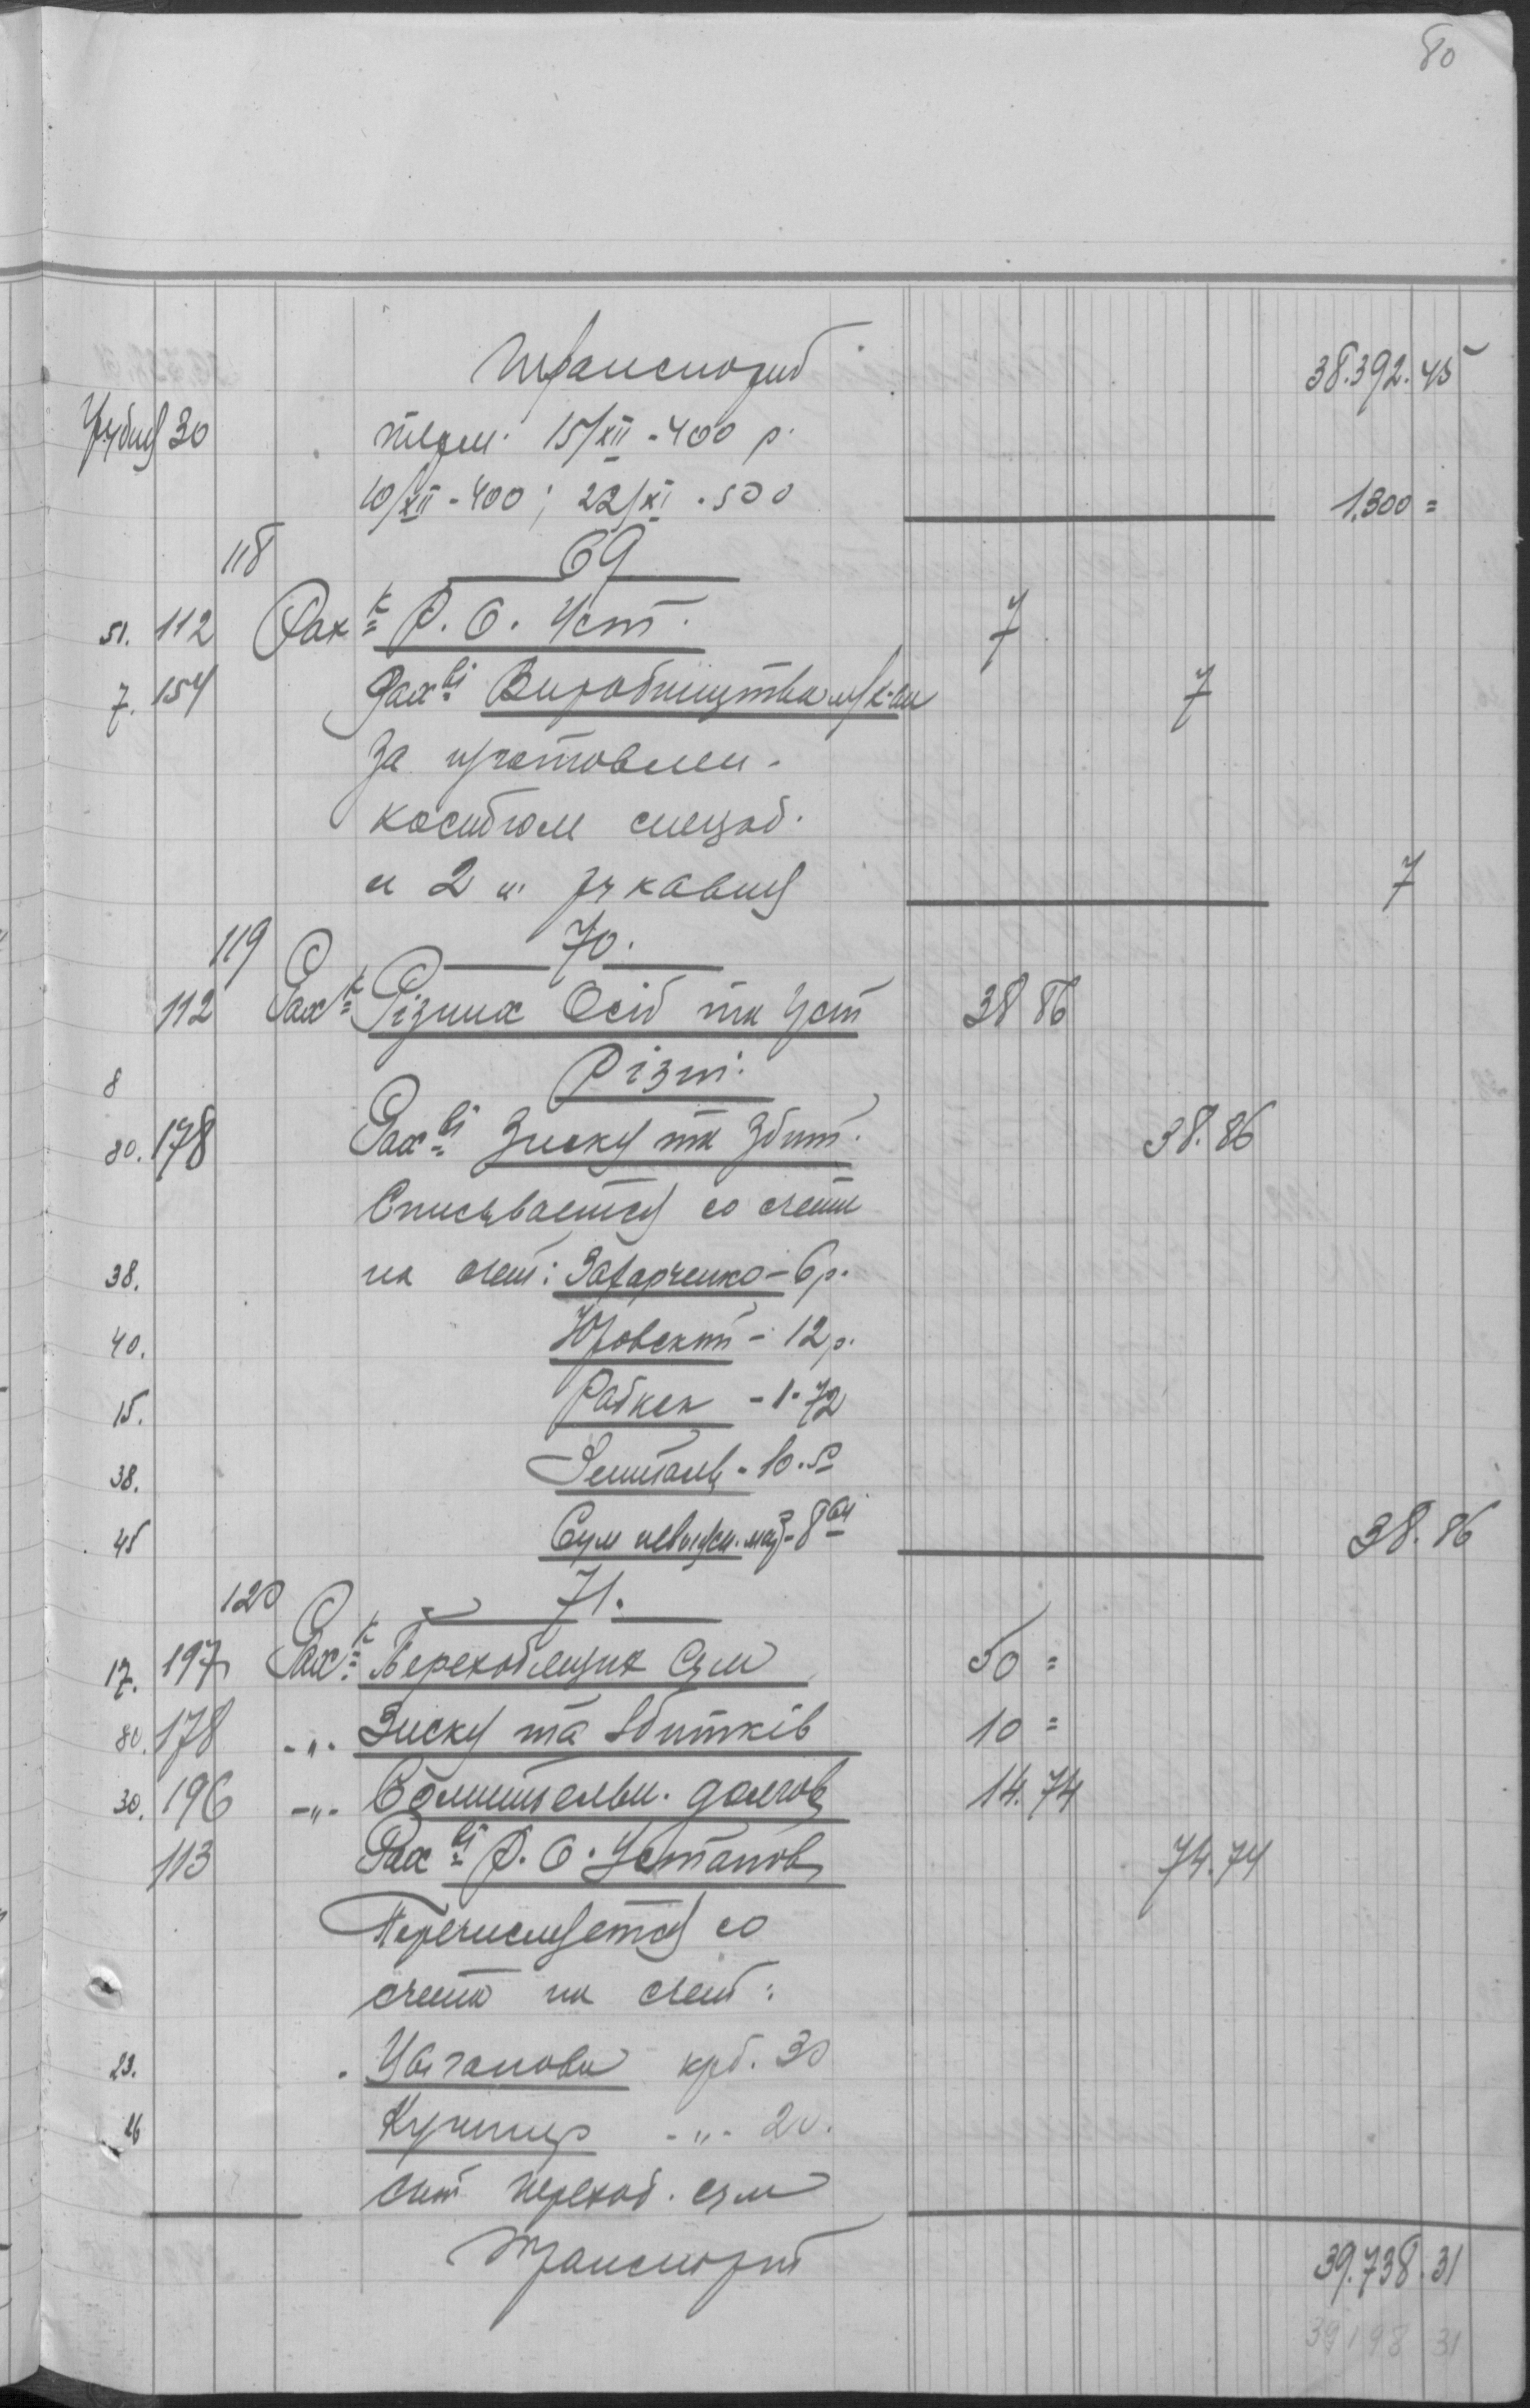 80
Транспорт 38.392.45
Грудня 30 телегр. 15/XII - 400 р.
10/XII - 400; 22/XI - 500 1.300 =
118 69
51. 112 Рах-к Р. О. Уст. 7
7. 154 Рах-ві Виробництва 7
За изготовлен.
костюм спецод.
и 2 п. рукавиц 7
119 70.
112 Рах-к Різних Осіб та Уст 38 86
8 Різні.
80. 178 Рах-ві Зиску та Збит. 38.86
Списывается со счета
38. на счет: Захарченко - 6 р.
40. Юровский - 12 р.
15. Рабкен - 1.72
38. - 10.50
45 Сум - 8 64 38.86
120 71.
17. 197 Рах-к Переходящих Сум 50 =
80. 178 -"- Зиску та Збитків 10 =
30. 196 -"- Сомнительн. долгов 14.74
113 Рах-ві Р. О. Установ 74.74
Перечисляется со
счета на счет:
23. Цыганова крб. 30
26 Кушнир -"- 20.
счет переход. сум
Транспорт 39.738.31
39198 31